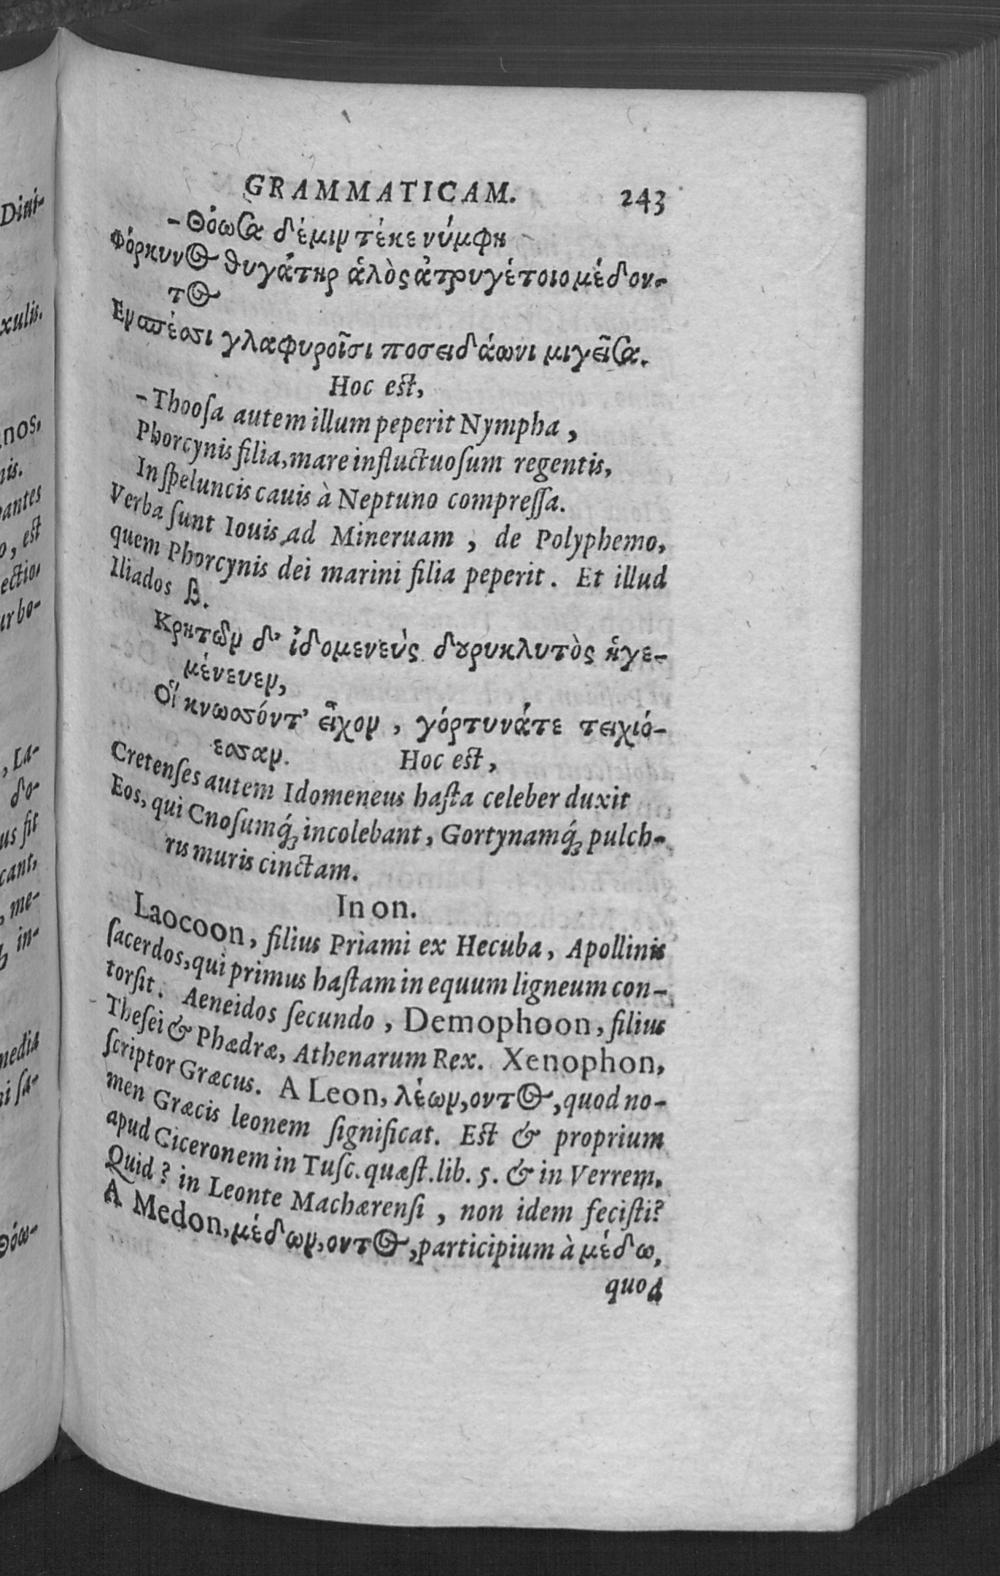 GRAMMATICAM. 243
-Θόωσα δέ μιν τέκε νύμφη
Φόρκυνος θυγάτηρ ἁλὸς ἀτρυγέτοιο μέδον-
τος
Εν σπέσσι γλαφυροῖσι ποσειδάωνι μιγεῖσα.
Hoc est,
-Thoosa autem illum peperit Nympha,
Phorcynis filia, mare influctuosum regentis,
In speluncis cauis à Neptuno compressa.
Verba sunt Iouis ad Mineruam, de Polyphemo,
quem Phorcynis dei marini filia peperit. Et illud
Iliados β.
Κρητῶν δ' ἰδομενεὺς δουρυκλυτὸς ἡγε-
μόνευεν,
Οἵ κνωσσόντ' εἶχον, γόρτυνάτε τειχιό-
εσσαν. Hoc est,
Cretenses autem Idomeneus hasta celeber duxit
Eos, qui Cnosumq́ꝫ incolebant, Gortynamq́ꝫ pulch-
ris muris cinctam.
In on.
Laocoon, filius Priami ex Hecuba, Apollinis
sacerdos, qui primus hastam in equum ligneum con-
torsit. Aeneidos secundo, Demophoon, filius
Thesei & Phædræ, Athenarum Rex. Xenophon,
scriptor Græcus. A Leon, λέων, οντος, quod no-
men Græcis leonem significat. Est & proprium
apud Ciceronem in Tusc. quæst. lib. 5. & in Verrem.
Quid? in Leonte Machærensi, non idem fecisti?
A Medon, μέδων, οντος, participium à μέδω,
quod
Diui-
xulis.
nos,
nis.
antes
o, est
ectio,
ur bo-
, La-
δο-
us sit
cant,
, me-
in-
media
ni sa-
θόω-